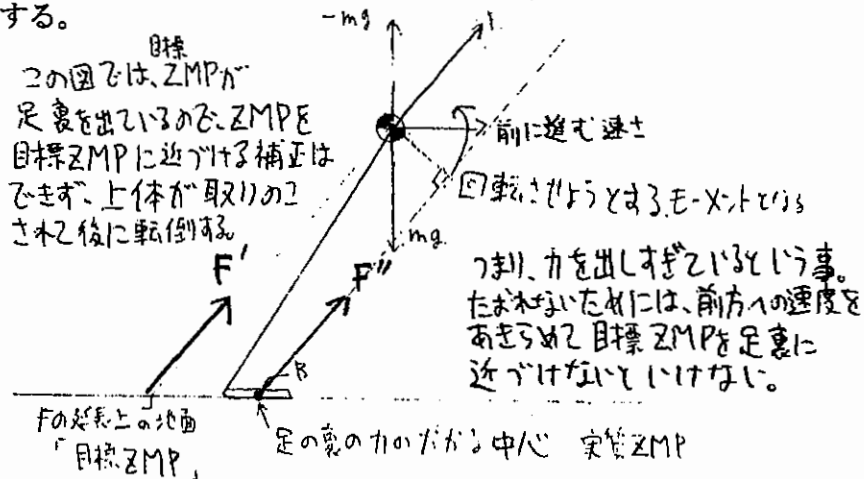 する。
目標
この図では、ZMPが
足裏を出ているので、ZMPを
目標ZMPに近づける補正は
できず、上体が取りのこ
されて後に転倒する
-mg
F
前に進む速さ
回転させようとするモーメントとなる
mg
F'
F"
R
つまり、力を出しすぎているという事。
たおれないためには、前方への速度を
あきらめて目標ZMPを足裏に
近づけないといけない。
Fの延長上の地面
「目標ZMP」
足の裏の力のかかる中心 実質ZMP